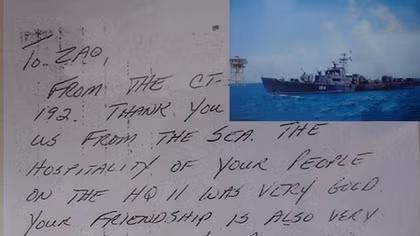 To ZAO,
FROM THE CT-
192. THANK YOU
US FROM THE SEA. THE
HOSPITALITY OF YOUR PEOPLE
ON THE HQ 11 WAS VERY GOOD.
YOUR FRIENDSHIP IS ALSO VERY